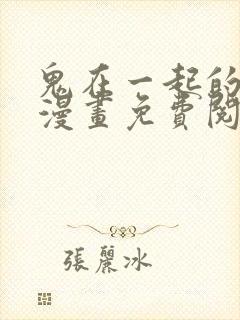 鬼在一起的
漫畫免費閱
張麗冰